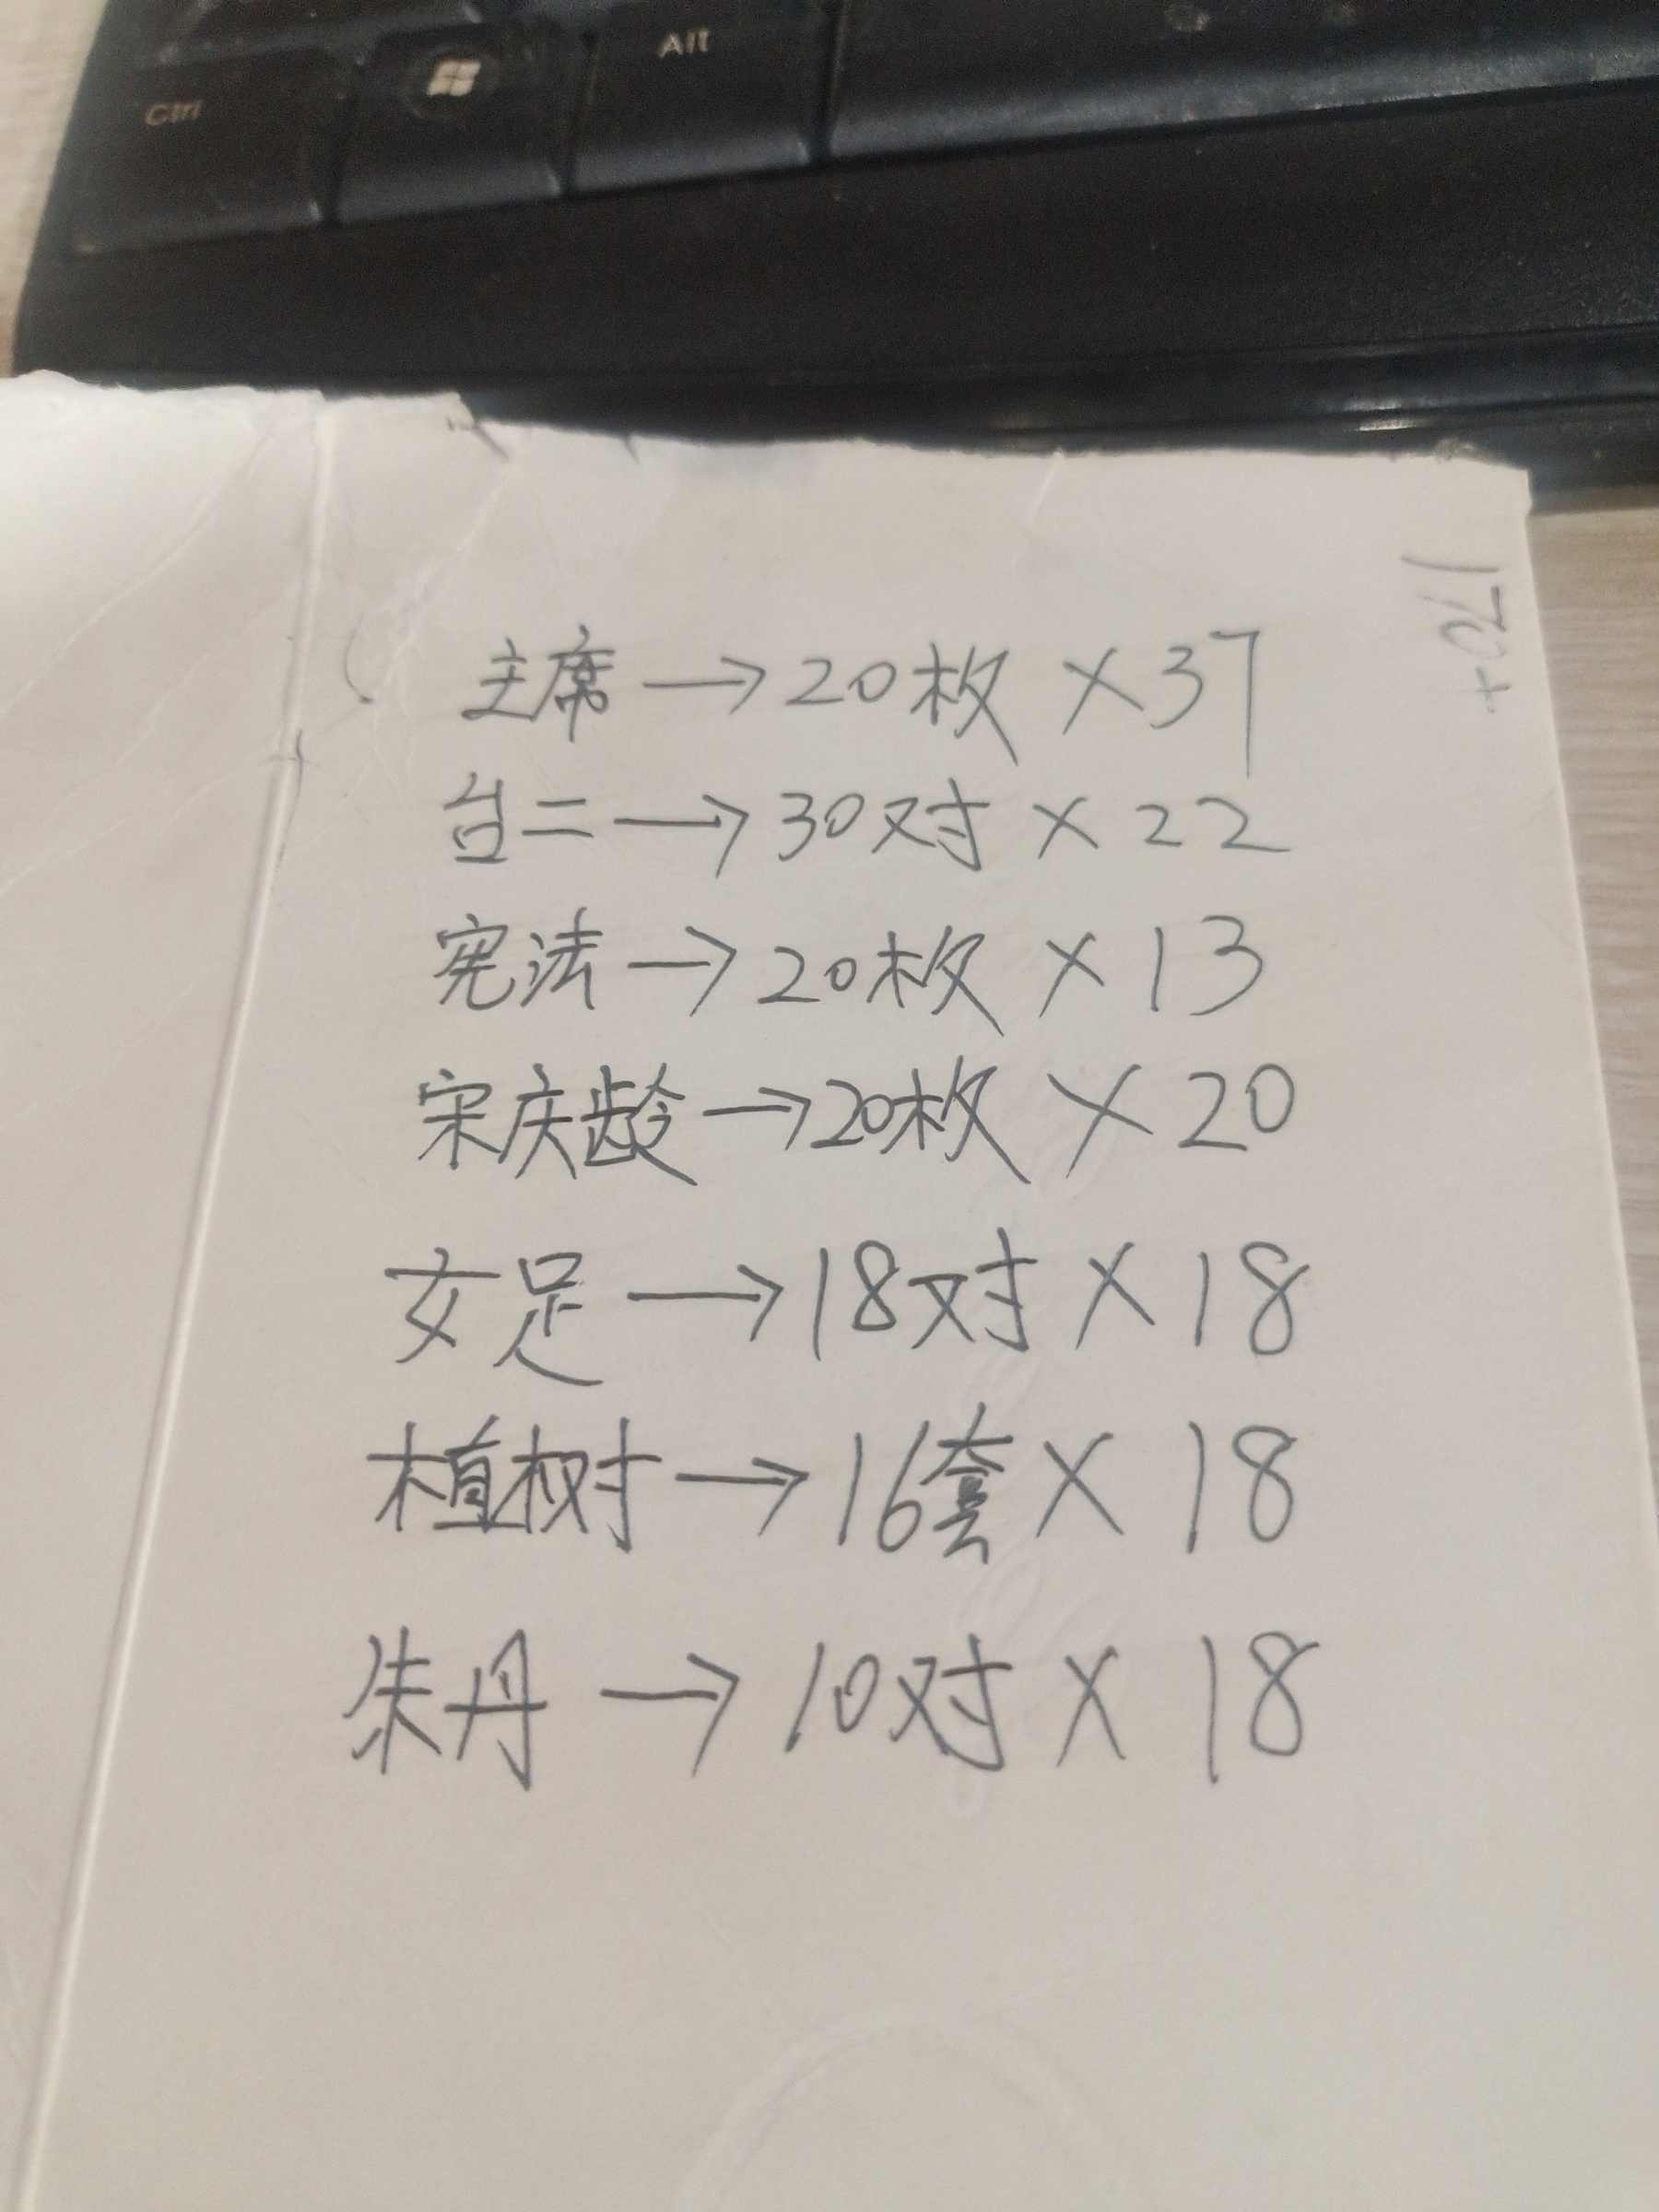 Ctrl
Alt
主席→20枚×37
台二→30对×22
宪法→20枚×13
宋庆龄→20枚×20
女足→18对×18
植树→16套×18
朱丹→10对×18